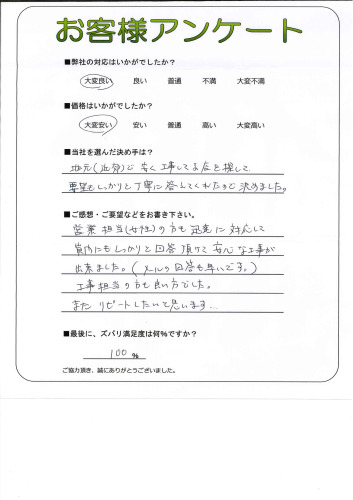 お客様アンケート
■弊社の対応はいかがでしたか？
大変良い 良い 普通 不満 大変不満
■価格はいかがでしたか？
大変安い 安い 普通 高い 大変高い
■当社を選んだ決め手は？
地元(近郊)で安く工事してる店を探して
要望もしっかりと丁寧に答えてくれたので決めました。
■ご感想・ご要望などをお書き下さい。
営業担当(女性)の方も迅速に対応して
質問にもしっかりと回答頂けて安心な工事が
出来ました。(メールの回答も早いです。)
工事担当の方も良い方でした。
またリピートしたいと思います…
■最後に、ズバリ満足度は何%ですか？
100 %
ご協力頂き、誠にありがとうございました。